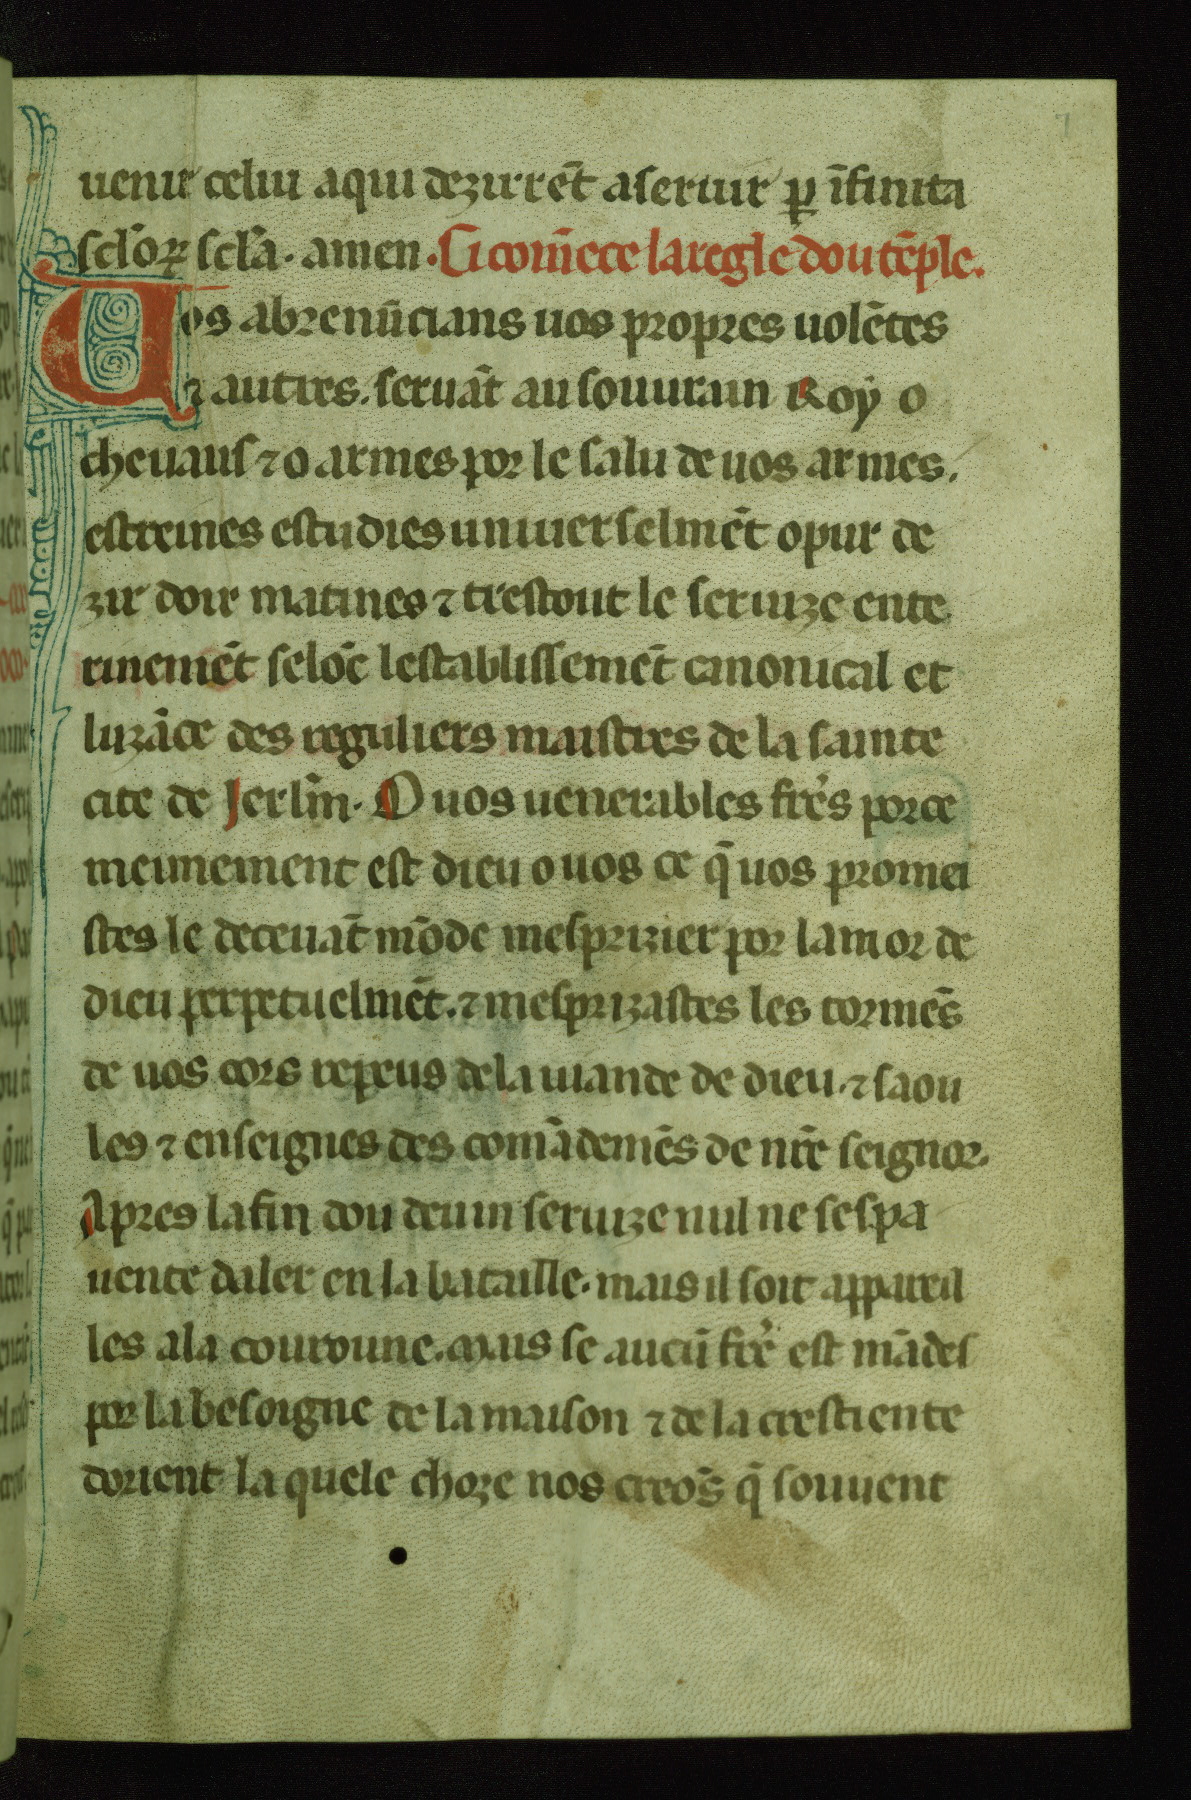 7
uenir celui aqui dezirrēt aseruir ꝑ īfinita
scl̄oꝝ scl̄a. amen. Ci com̄ece laregle dou tēple.
Uos abrenūcians uos propres uolētes
⁊ autres. seruāt au souurain Roy o
cheuaus ⁊ o armes por le salu de uos armes.
estreines estudies uniuerselmēt opur de
zir doir matines ⁊ trestout le seruize ente
rinemēt selōc lestablissemēt canonical et
luzāce des reguliers maistres de la sainte
cite de Jerl̄m. O uos uenerables frēs porce
meimement est dieu o uos ce q̄ uos promei
stes le deceuāt mōde mesprizier por lamor de
dieu perpetuelmēt. ⁊ mesprizastes les tormēs
de uos cors repeus dela uiande de dieu. ⁊ saou
les ⁊ enseignes des comādemēs de nrē seignor.
Apres lafin dou deuin seruize nul ne sespa
uente daler en la bataille. mais il soit appareil
les ala couroune. mais se aucū frē est mādes
por la besoigne de la maison ⁊ de la crestiente
dorient la quele choze nos creōs q̄ souuent